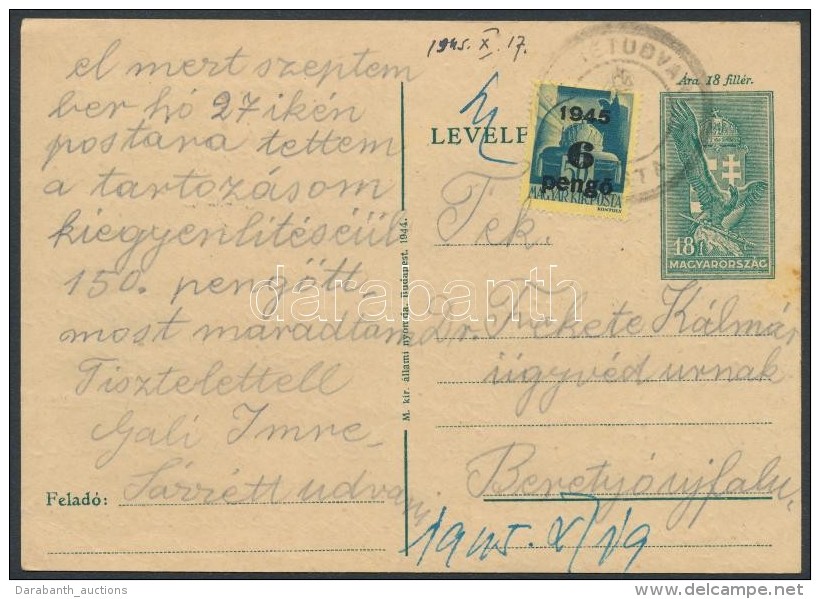 el mert szeptem
ber hó 27 ikén
postara tettem
a tartozásom
kiegyenlitéséül
150. pengőtt
most maradtam
Tisztelettell
Gali Imre
Feladó: Sárrétt udvari
M. kir. állami nyomda. Budapest, 1944.
1945. X. 17.
Ára 18 fillér.
LEVELE
1945
6
pengő
MAGYAR KIR. POSTA
18 f
MAGYARORSZÁG
Tek.
Dr. Fekete Kálmán
ügyvéd urnak
Berettyóujfalu.
1945. X/19
darabanth
Darabanth_auctions
delcampe.net